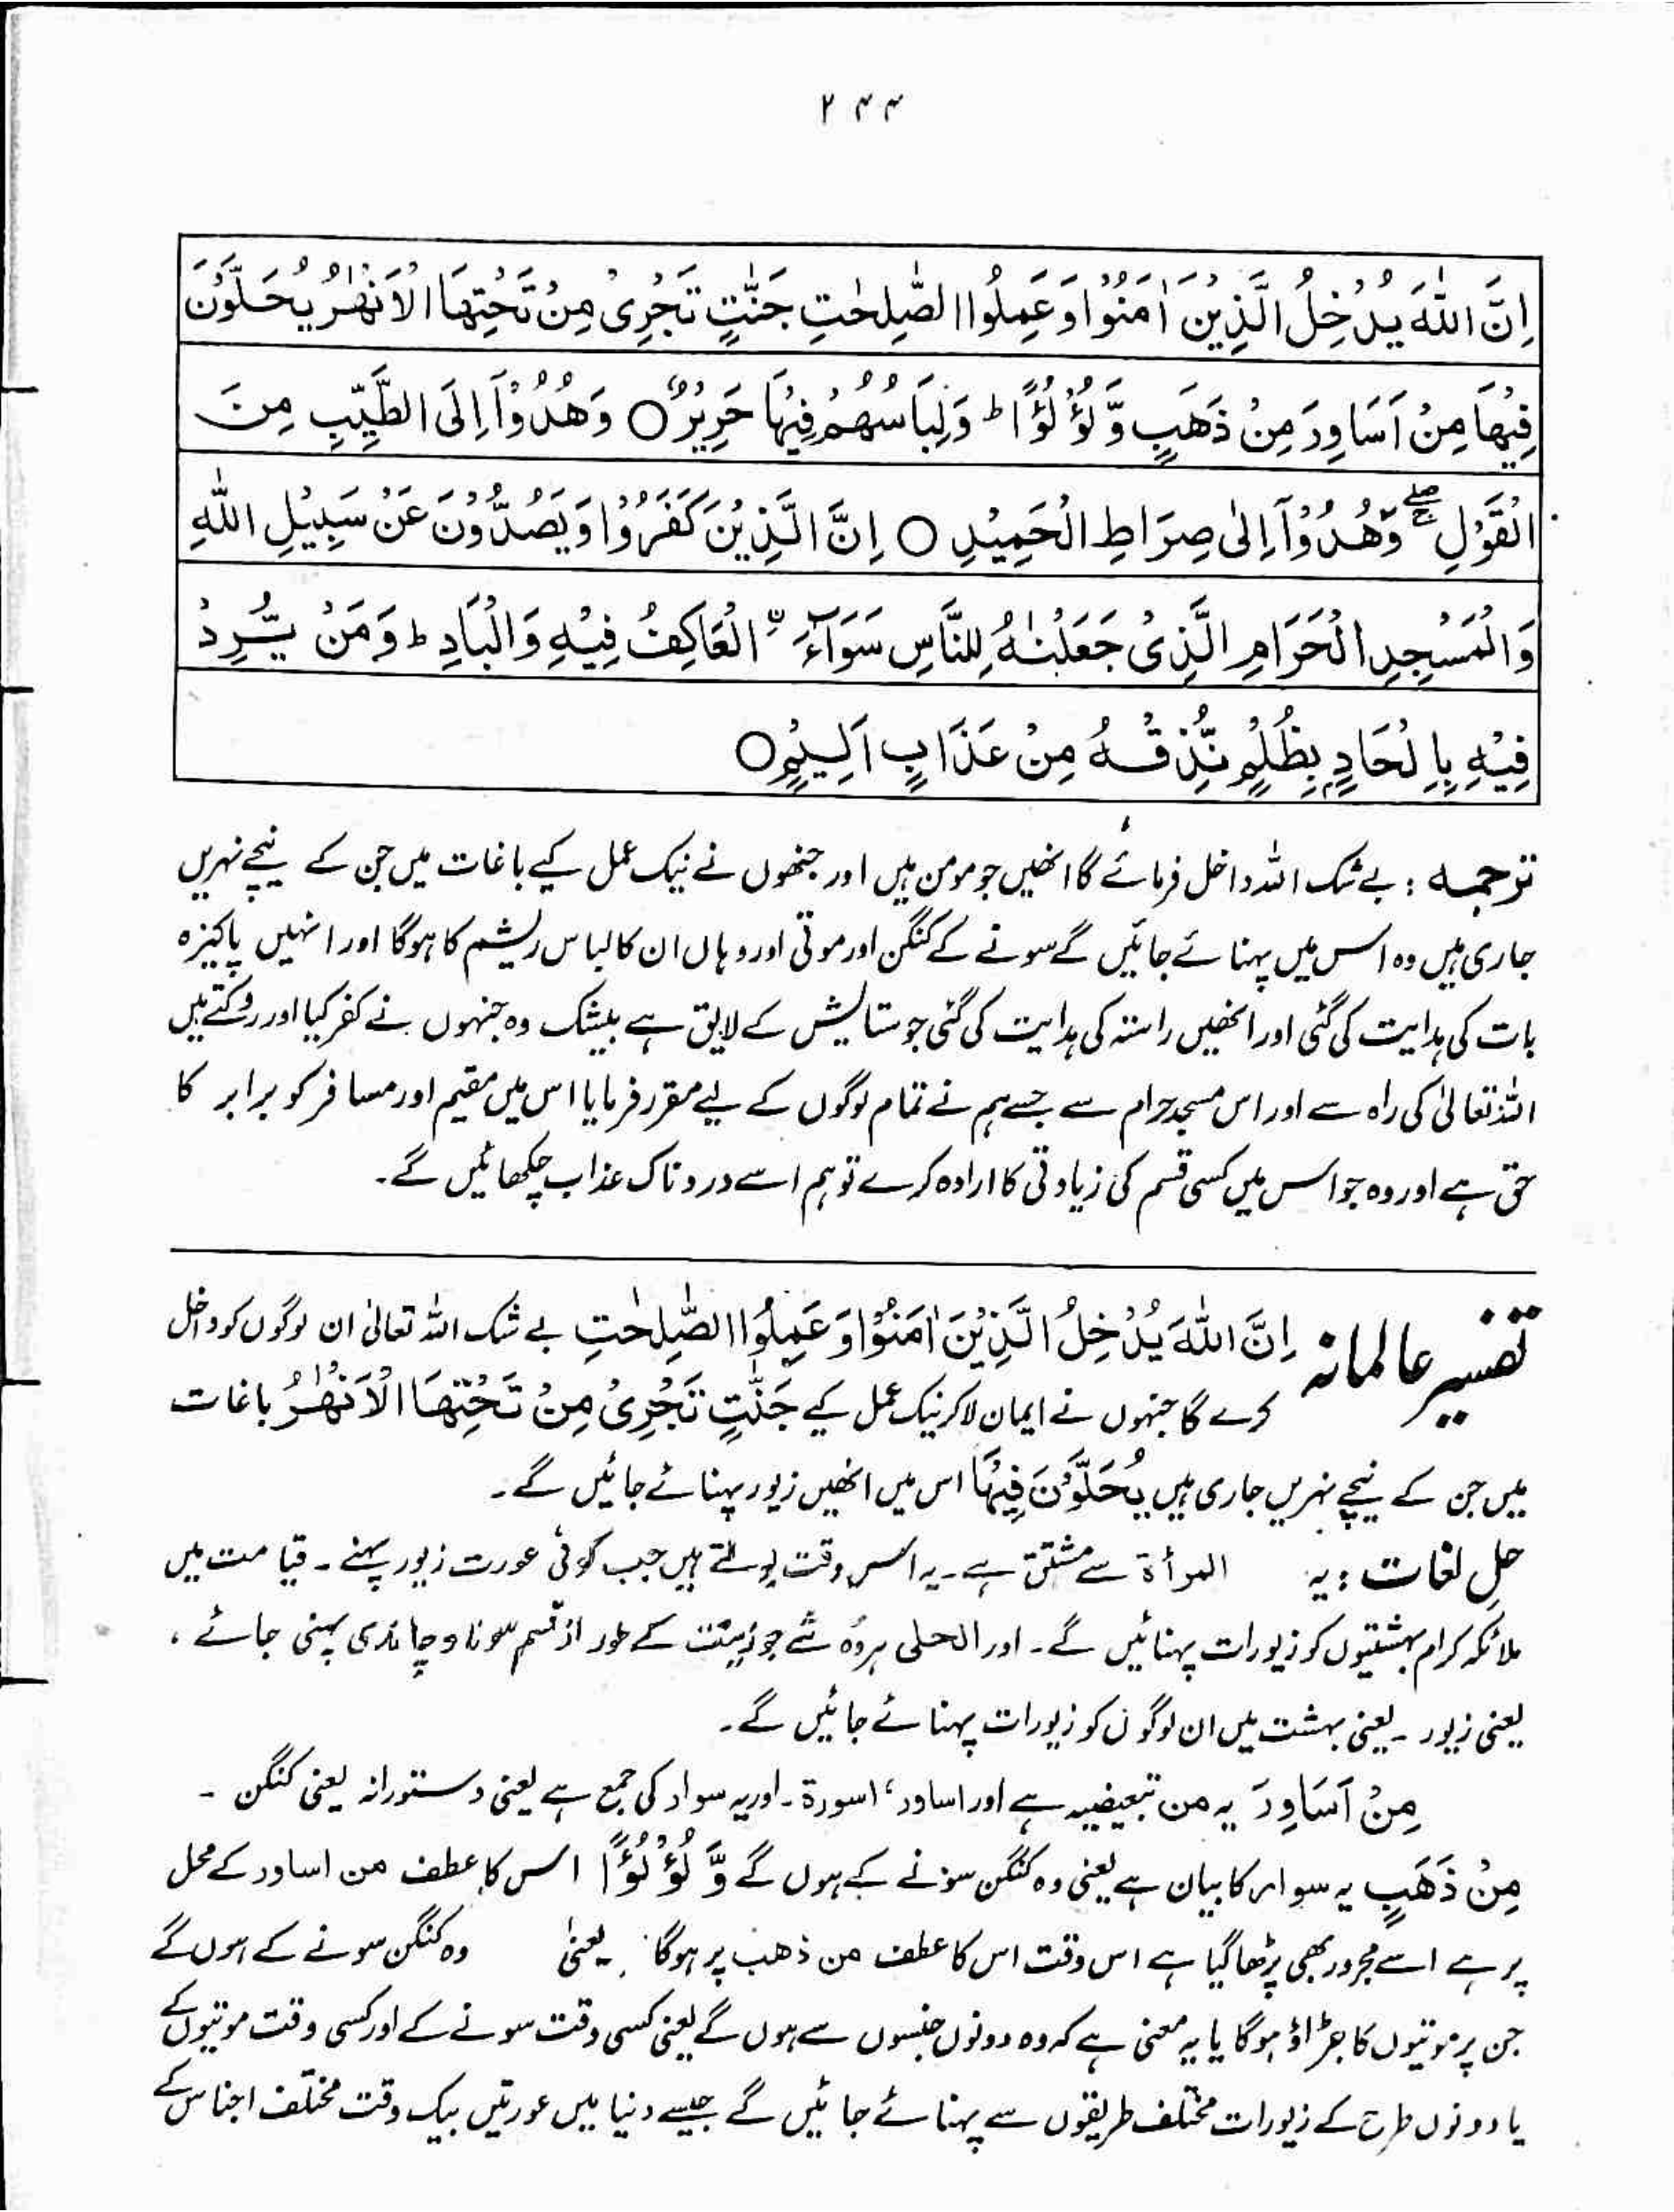 ۲۴۴
اِنَّ اللّٰهَ یُدْخِلُ الَّذِیْنَ اٰمَنُوْا وَ عَمِلُوا الصّٰلِحٰتِ جَنّٰتٍ تَجْرِیْ مِنْ تَحْتِهَا الْاَنْهٰرُ یُحَلَّوْنَ
فِیْهَا مِنْ اَسَاوِرَ مِنْ ذَهَبٍ وَّ لُؤْلُؤًا ؕ وَ لِبَاسُهُمْ فِیْهَا حَرِیْرٌ ○ وَ هُدُوْۤا اِلَی الطَّیِّبِ مِنَ
الْقَوْلِ ۖۚ وَ هُدُوْۤا اِلٰی صِرَاطِ الْحَمِیْدِ ○ اِنَّ الَّذِیْنَ كَفَرُوْا وَ یَصُدُّوْنَ عَنْ سَبِیْلِ اللّٰهِ
وَ الْمَسْجِدِ الْحَرَامِ الَّذِیْ جَعَلْنٰهُ لِلنَّاسِ سَوَآءَ ن الْعَاكِفُ فِیْهِ وَ الْبَادِ ؕ وَ مَنْ یُّرِدْ
فِیْهِ بِاِلْحَادٍۭ بِظُلْمٍ نُّذِقْهُ مِنْ عَذَابٍ اَلِیْمٍ ○
ترجمہ : بے شک اللہ داخل فرمائے گا انھیں جو مومن ہیں اور جنھوں نے نیک عمل کیے باغات میں جن کے نیچے نہریں
جاری ہیں وہ اس میں پہنائے جائیں گے سونے کے کنگن اور موتی اور وہاں ان کا لباس ریشم کا ہوگا اور انہیں پاکیزہ
بات کی ہدایت کی گئی اور انھیں راستہ کی ہدایت کی گئی جو ستایش کے لایق ہے بیشک وہ جنہوں نے کفر کیا اور روکتے ہیں
اللہ تعالیٰ کی راہ سے اور اس مسجد حرام سے جسے ہم نے تمام لوگوں کے لیے مقرر فرمایا اس میں مقیم اور مسافر کو برابر کا
حق ہے اور وہ جو اس میں کسی قسم کی زیادتی کا ارادہ کرے تو ہم اسے دردناک عذاب چکھائیں گے۔
تفسیر عالمانہ اِنَّ اللّٰهَ یُدْخِلُ الَّذِیْنَ اٰمَنُوْا وَ عَمِلُوا الصّٰلِحٰتِ بے شک اللہ تعالیٰ ان لوگوں کو داخل
کرے گا جنہوں نے ایمان لا کر نیک عمل کیے جَنّٰتٍ تَجْرِیْ مِنْ تَحْتِهَا الْاَنْهٰرُ باغات
میں جن کے نیچے نہریں جاری ہیں یُحَلَّوْنَ فِیْهَا اس میں انھیں زیور پہنائے جائیں گے۔
حلِ لغات : یہ المرأۃ سے مشتق ہے۔ یہ اس وقت بولتے ہیں جب کوئی عورت زیور پہنے۔ قیامت میں
ملائکہ کرام بہشتیوں کو زیورات پہنائیں گے۔ اور الحلی ہر وہ شے جو زینت کے طور از قسم سونا و چاندی پہنی جائے ،
یعنی زیور۔ یعنی بہشت میں ان لوگوں کو زیورات پہنائے جائیں گے۔
مِنْ اَسَاوِرَ یہ من تبعیضیہ ہے اور اساور ، اسورۃ۔ اور یہ سوار کی جمع ہے یعنی دستورانہ یعنی کنگن ۔
مِنْ ذَهَبٍ یہ سوار کا بیان ہے یعنی وہ کنگن سونے کے ہوں گے وَّ لُؤْلُؤًا اس کا عطف من اساور کے محل
پر ہے اسے مجرور بھی پڑھا گیا ہے اس وقت اس کا عطف من ذھب پر ہوگا یعنی وہ کنگن سونے کے ہوں گے
جن پر موتیوں کا جڑاؤ ہوگا یا یہ معنی ہے کہ وہ دونوں جنسوں سے ہوں گے یعنی کسی وقت سونے کے اور کسی وقت موتیوں کے
یا دونوں طرح کے زیورات مختلف طریقوں سے پہنائے جائیں گے جیسے دنیا میں عورتیں بیک وقت مختلف اجناس کے